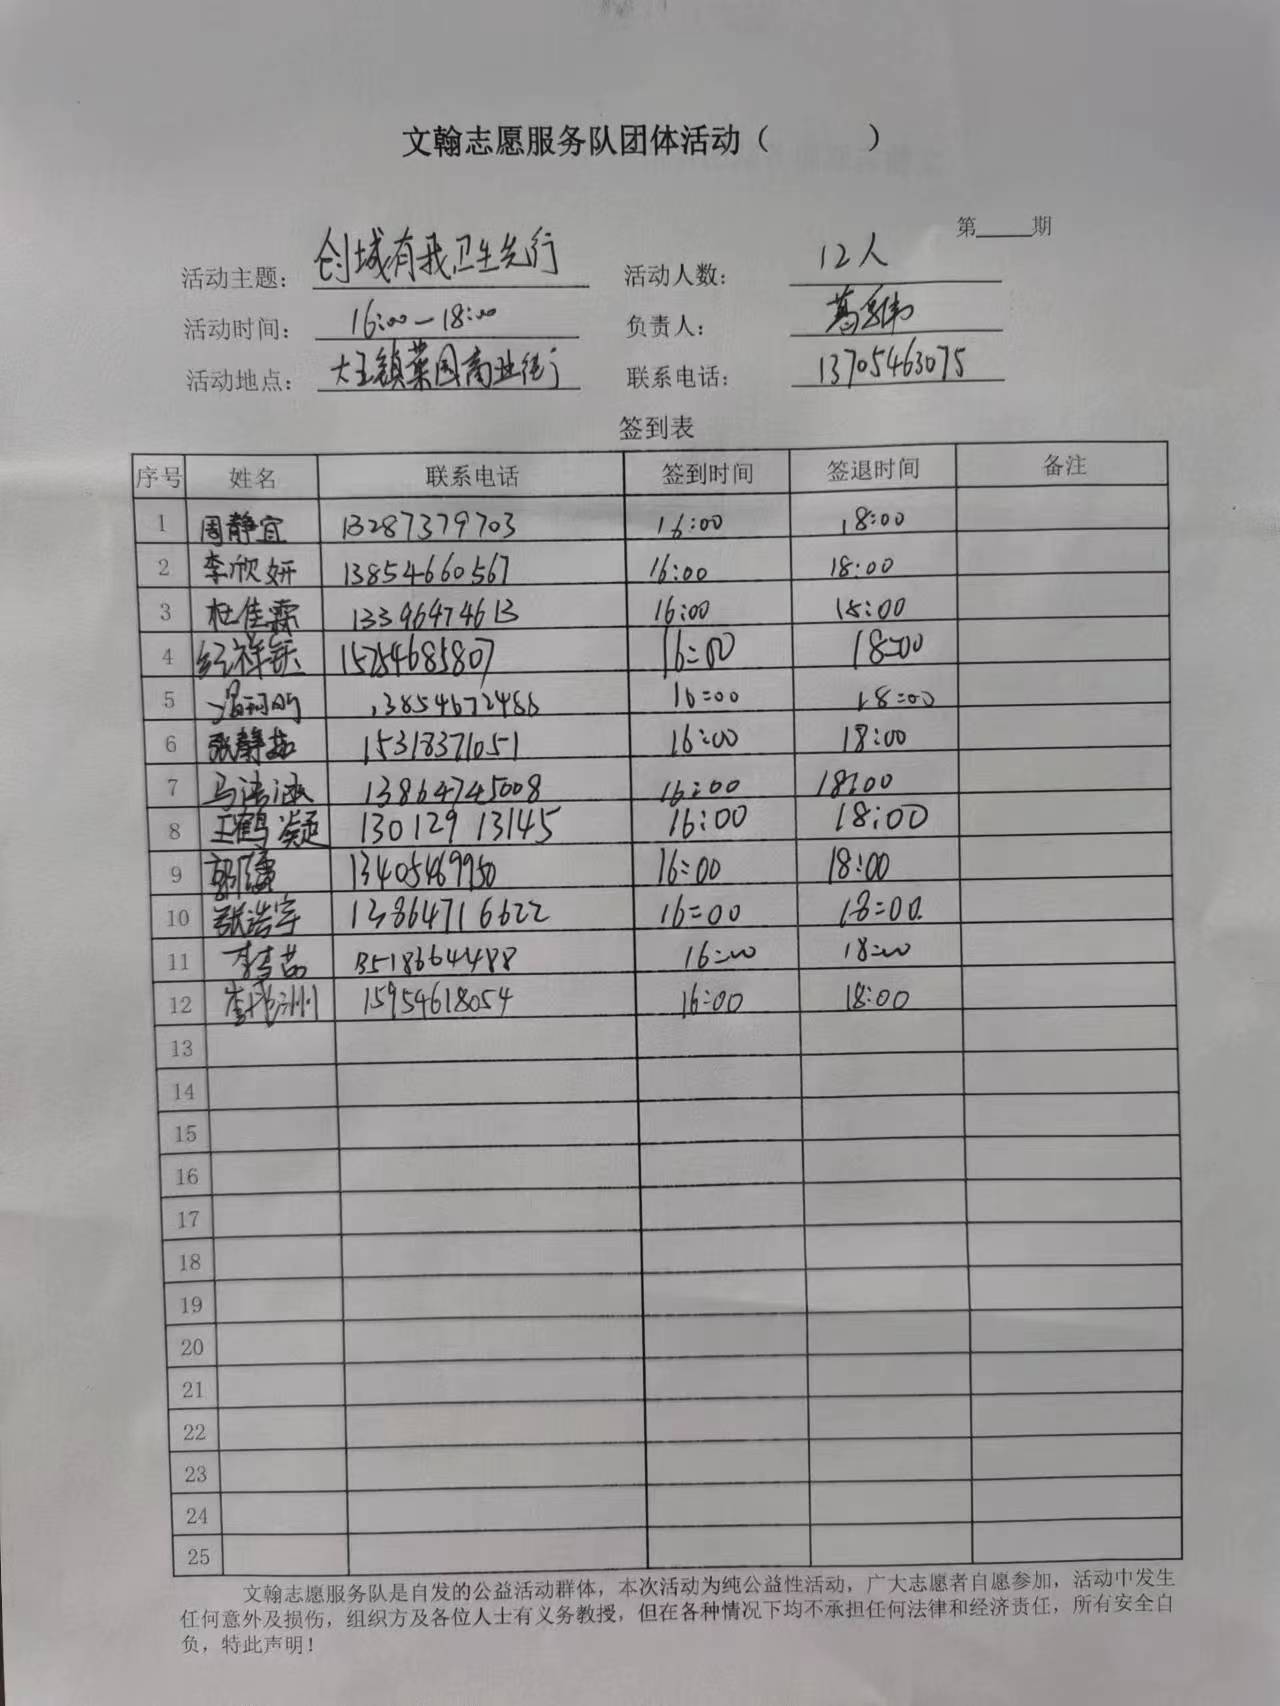 文翰志愿服务队团体活动（　　　）
第____期
活动主题：创城有我卫生先行 活动人数：12人
活动时间：16:00—18:00 负责人：葛
活动地点：大王镇菜园商业街 联系电话：13705463075
签到表
序号 姓名 联系电话 签到时间 签退时间 备注
1 周静宜 13287379703 16:00 18:00
2 李欣妍 13854660567 16:00 18:00
3 杜佳霖 13396474613 16:00 18:00
4 纪祥钰 15254685807 16:00 18:00
5 13854672486 16:00 18:00
6 张静茹 15318371051 16:00 18:00
7 马浩涵 13864745008 16:00 18:00
8 王鹤凝 13012913145 16:00 18:00
9 郭 13405469950 16:00 18:00
10 张浩宇 13864716622 16:00 18:00
11 李 13518664488 16:00 18:00
12 李 洲 15954618054 16:00 18:00
13
14
15
16
17
18
19
20
21
22
23
24
25
文翰志愿服务队是自发的公益活动群体，本次活动为纯公益性活动，广大志愿者自愿参加，活动中发生
任何意外及损伤，组织方及各位人士有义务教授，但在各种情况下均不承担任何法律和经济责任，所有安全自
负，特此声明！